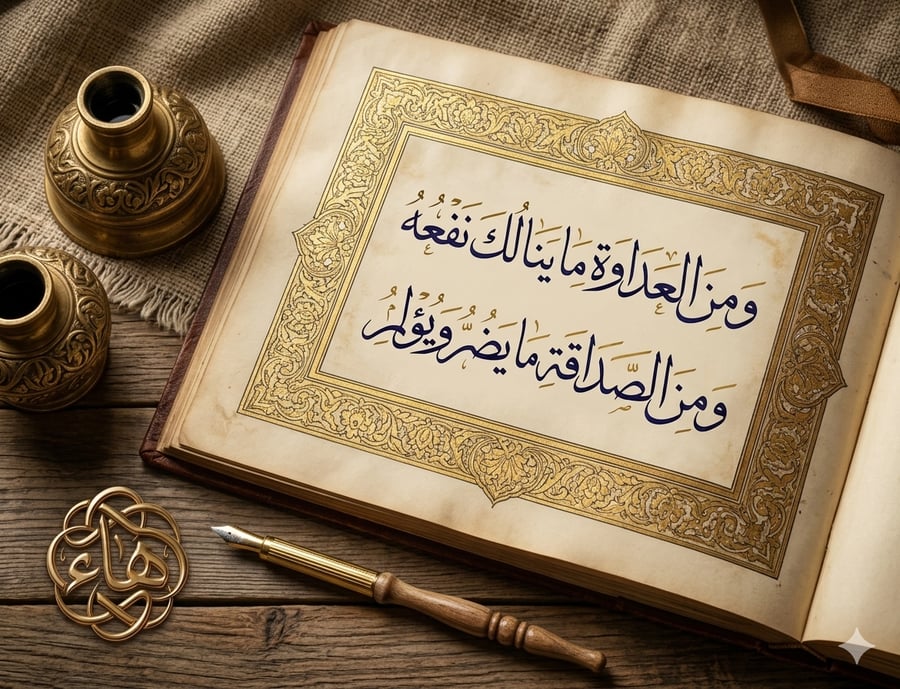 وَمِنَ العَدَاوَةِ مَا يَنَالُكَ نَفْعُهُ
وَمِنَ الصَّدَاقَةِ مَا يَضُرُّ وَيُؤْلِمُ
هاء